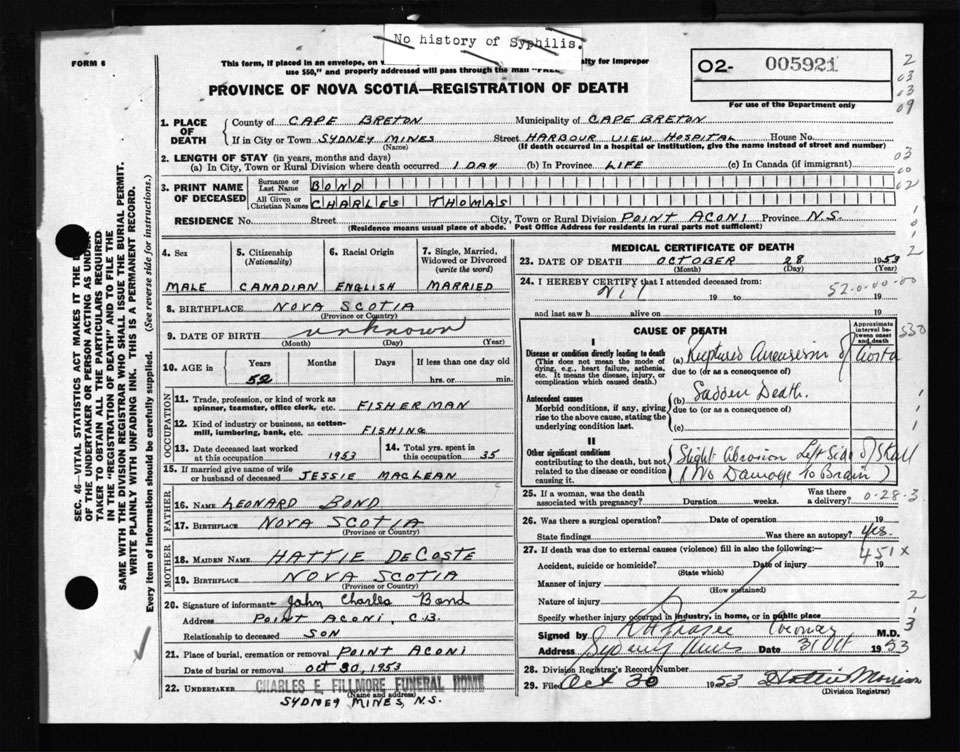 No history of Syphilis.
FORM 6
This form, if placed in an envelope, on
alty for improper
use $50," and properly addressed will pass through the mail "FREE"
PROVINCE OF NOVA SCOTIA—REGISTRATION OF DEATH
O2- 005921
For use of the Department only
2
03
03
09
1. PLACE OF DEATH
County of CAPE BRETON Municipality of CAPE BRETON
If in City or Town SYDNEY MINES Street HARBOUR VIEW HOSPITAL House No.
(Name) (If death occurred in a hospital or institution, give the name instead of street and number)
2. LENGTH OF STAY (in years, months and days)
(a) In City, Town or Rural Division where death occurred 1 DAY (b) In Province LIFE (c) In Canada (if immigrant)
03
00
02
3. PRINT NAME OF DECEASED
Surname or Last Name BOND
All Given or Christian Names CHARLES THOMAS
RESIDENCE No. Street City, Town or Rural Division POINT ACONI Province N.S.
(Residence means usual place of abode. Post Office Address for residents in rural parts not sufficient)
4. Sex MALE
5. Citizenship (Nationality) CANADIAN
6. Racial Origin ENGLISH
7. Single, Married, Widowed or Divorced (write the word) MARRIED
8. BIRTHPLACE NOVA SCOTIA
(Province or Country)
9. DATE OF BIRTH unknown
(Month) (Day) (Year)
10. AGE in Years 52 Months Days If less than one day old hrs. or min.
OCCUPATION
11. Trade, profession, or kind of work as spinner, teamster, office clerk, etc. FISHERMAN
12. Kind of industry or business, as cotton-mill, lumbering, bank, etc. FISHING
13. Date deceased last worked at this occupation 1953
14. Total yrs. spent in this occupation 35
15. If married give name of wife or husband of deceased JESSIE MACLEAN
FATHER
16. Name LEONARD BOND
17. Birthplace NOVA SCOTIA
(Province or Country)
MOTHER
18. MAIDEN NAME HATTIE DECOSTE
19. Birthplace NOVA SCOTIA
(Province or Country)
20. Signature of informant John Charles Bond
Address POINT ACONI, C.B.
Relationship to deceased SON
21. Place of burial, cremation or removal POINT ACONI
Date of burial or removal Oct 30, 1953
22. UNDERTAKER CHARLES E. FILLMORE FUNERAL HOME
(Name and address)
SYDNEY MINES, N.S.
MEDICAL CERTIFICATE OF DEATH
23. DATE OF DEATH OCTOBER 28 1953
(Month) (Day) (Year)
24. I HEREBY CERTIFY that I attended deceased from:
Nil 19 to 19
52-0-00-00
and last saw h alive on 19
CAUSE OF DEATH
Approximate interval between onset and death
530
I
Disease or condition directly leading to death
(This does not mean the mode of dying, e.g., heart failure, asthenia, etc. It means the disease, injury, or complication which caused death.)
(a) Ruptured Aneurism of Aorta
due to (or as a consequence of)
Antecedent causes
Morbid conditions, if any, giving rise to the above cause, stating the underlying condition last.
(b) Sudden Death.
due to (or as a consequence of)
(c)
II
Other significant conditions contributing to the death, but not related to the disease or condition causing it.
Slight Abrasion Left Side of Skull
(No Damage to Brain)
25. If a woman, was the death associated with pregnancy? Duration weeks. Was there a delivery?
0-28-3
26. Was there a surgical operation? Date of operation 19
State findings Was there an autopsy? Yes.
27. If death was due to external causes (violence) fill in also the following:—
451X
Accident, suicide or homicide? Date of injury 19
(State which)
Manner of injury
(How sustained)
Nature of injury
Specify whether injury occurred in industry, in home, or in public place
Signed by Coroner M.D.
Address Sydney Mines Date 31 Oct 1953
28. Division Registrar's Record Number
29. Filed Oct 30 1953 Hattie Morrison
(Division Registrar)
SEC. 46—VITAL STATISTICS ACT MAKES IT THE
OF THE UNDERTAKER OR PERSON ACTING AS UNDER-
TAKER TO OBTAIN ALL THE PARTICULARS REQUIRED
IN THE "REGISTRATION OF DEATH" AND TO FILE THE
SAME WITH THE DIVISION REGISTRAR WHO SHALL ISSUE THE BURIAL PERMIT.
WRITE PLAINLY WITH UNFADING INK. THIS IS A PERMANENT RECORD.
Every item of information should be carefully supplied. (See reverse side for instructions.)